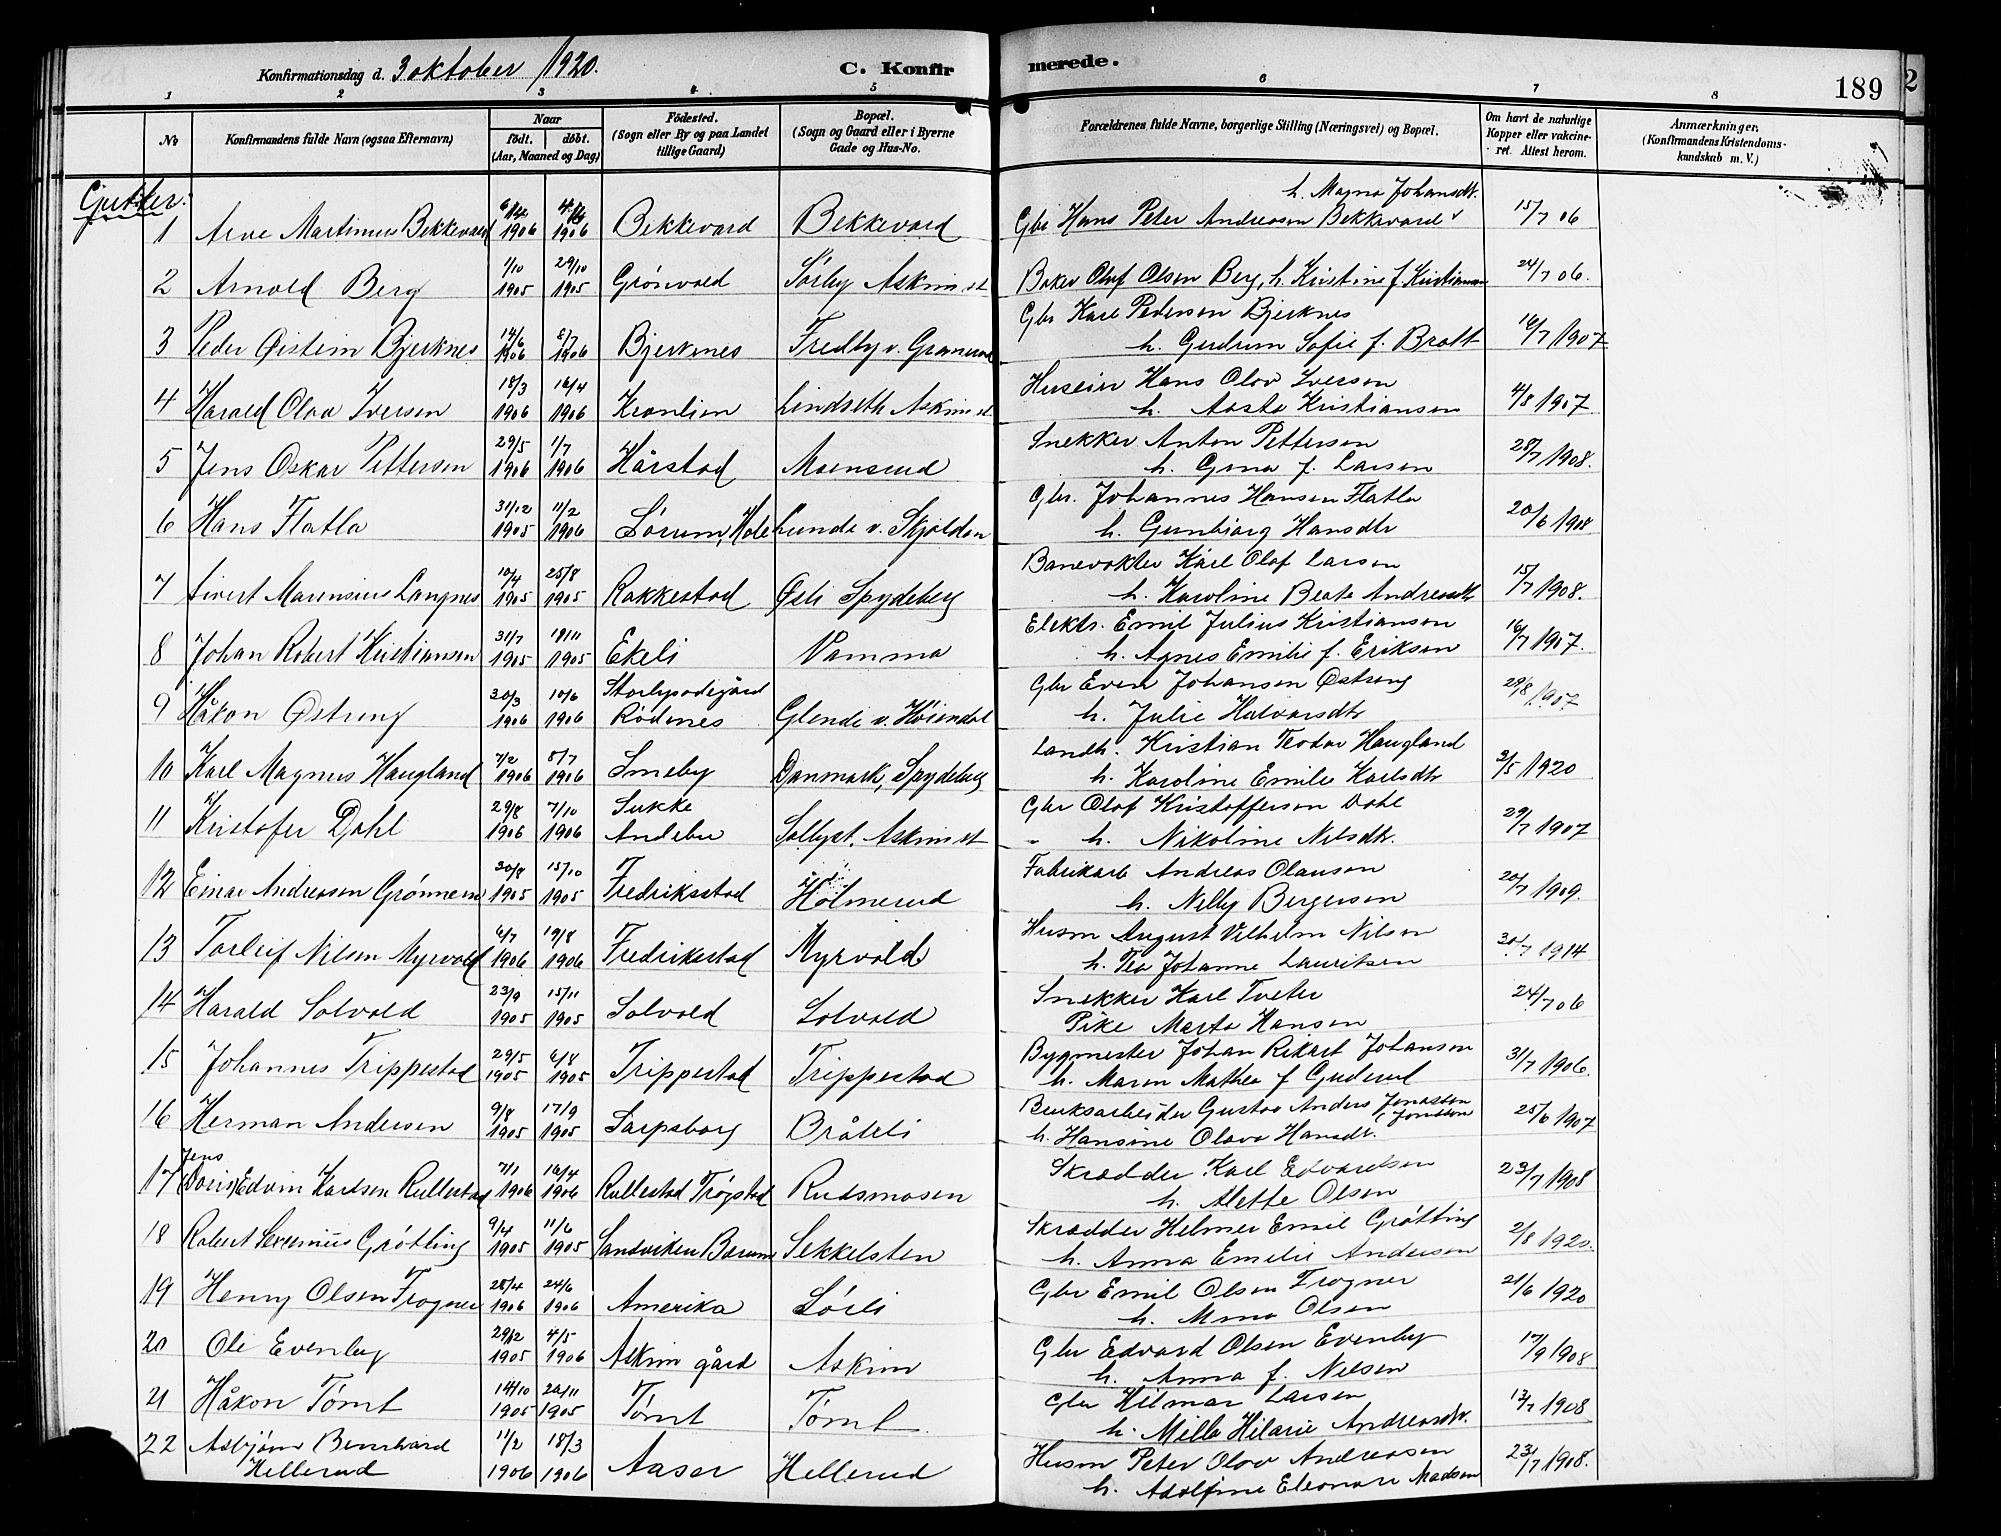 Konfirmationsdag d. 3 oktober 1920.
C. Konfirmerede.
189
1 2 3 4 5 6 7 8
No
Konfirmandens fulde Navn (ogsaa Efternavn)
Naar
født. døbt.
(Aar, Maaned og Dag)
Fødested.
(Sogn eller By og paa Landet
tillige Gaard)
Bopæl.
(Sogn og Gaard eller i Byerne
Gade og Hus-No.
Forældrenes fulde Navne, borgerlige Stilling (Næringsvei) og Bopæl.
Om havt de naturlige
Kopper eller vakcine-
ret. Attest herom.
Anmærkninger.
(Konfirmandens Kristendoms-
kundskab m. V.)
Gutter:
h. Magna Johansdtr.
1 Arne Martinius Bekkevard 1906 1906 Bekkevard Bekkevard Gbr Hans Peter Andreasen Bekkevard 15/7 06
1/10 29/10
2 Arnold Berg 1905 1905 Grönvold Sörby Askim st Baker Oluf Olsen Berg, h. Kristine f. Kristiansen 24/7 06.
14/6 8/7 Gbr Karl Pedersen Bjerknes
3 Peder Øistein Bjerknes 1906 1906 Bjerknes Fredly v. Granerud h. Gudrun Sofie f. Bratt 16/7 1907
18/3 16/4 Huseier Hans Olav Iversen
4 Harald Olav Iversen 1906 1906 Kronlien Lindseth Askim st h. Aasta Kristiansen 4/8 1907
29/5 1/7 Snekker Anton Petterson
5 Jens Oskar Petterson 1906 1906 Hårstad Moensrud h. Gina f. Larsen 28/7 1908.
31/12 11/2 Gbr. Johannes Hansen Flatla
6 Hans Flatla 1905 1906 Sörum, Hole Lunde v. Skjolden h. Gunbjorg Hansdtr 20/6 1908
10/4 25/8 Banevokter Karl Olaf Larsen
7 Sivert Marensius Langnes 1905 1905 Rakkestad Østi Spydeberg h. Karoline Beate Andreasdtr 15/7 1908.
31/7 19/11 Elektr. Emil Julius Kristiansen
8 Johan Robert Kristiansen 1905 1905 Ekeli Vamma h. Agnes Emilie f. Eriksen 16/7 1907.
20/3 10/6 Gbr Even Johansen Østreng
9 Håkon Østreng 1906 1906 Rödenes Glende v. Höiendal h. Julie Halvarsdtr 29/8 1907
7/2 8/7 Landh. Kristian Teodor Haugland
10 Karl Magnus Haugland 1906 1906 Smeby Danmark, Spydeberg h. Karoline Emilie Karlsdtr 3/5 1920
29/8 7/10 Sukke Gbr Olaf Kristofferson Dahl
11 Kristofer Dahl 1906 1906 Andebu Solbyst. Askim st " h. Nikoline Nilsdtr. 29/7 1907
30/8 15/10 Fabrikarb Andreas Olausen
12 Einar Andreasen Grönnern 1905 1905 Fredriksstad Holmerud h. Nelly Bergersen 20/7 1909.
6/7 19/8 Husm August Vilhelm Nilsen
13 Torleif Nilsen Myrvold 1906 1906 Fredrikstad Myrvold h. Tea Johanne Lauritsen 30/7 1914
23/9 15/11 Snekker Karl Tveter
14 Harald Solvold 1905 1905 Solvold Solvold Pike Marta Hansen 24/7 06
29/5 6/8 Bygmester Johan Rikart Johansen
15 Johannes Trippestad 1905 1905 Trippestad Trippestad h. Maren Mathea f Guderud 31/7 1906.
9/8 17/9 Bruksarbeider Gustav Anders Jonassen
16 Herman Andersen 1905 1905 Sarpsborg Bråteli h. Hansine Olava Hansdtr. 25/6 1907
Jens 7/1 16/4 Skrædder Karl Edvardsen
17 Edvin Karlsen Rullestad 1906 1906 Rullestad Trögstad Rudsmosen h. Alette Olsen 23/7 1908
9/4 11/6 Skrædder Helmer Emil Gröttling
18 Robert Severinius Grötling 1905 1905 Sandviken Bærum Sekkelsten h. Anna Emelie Andersen 2/8 1920.
28/4 24/6 Gbr Emil Olsen Trogner
19 Henry Olsen Trogner 1906 1906 Amerika Sörli h. Mina Olsen 21/6 1920
29/12 4/5 Gbr Edvard Olsen Evenby
20 Ole Evenby 1905 1906 Askim gård Askim h. Anna f. Nelsen 17/9 1908
14/10 20/11 Gbr Hilmar Larsen
21 Håkon Tömt 1905 1905 Tömt Tömt h. Milla Hilarie Andreasdtr. 13/7 1908
11/2 18/3 Husm Peter Olav Andreasen
22 Asbjörn Bernhard
Hellerud 1906 1906 Aaser Hellerud h. Adolfine Eleonore Madsen 23/7 1908.